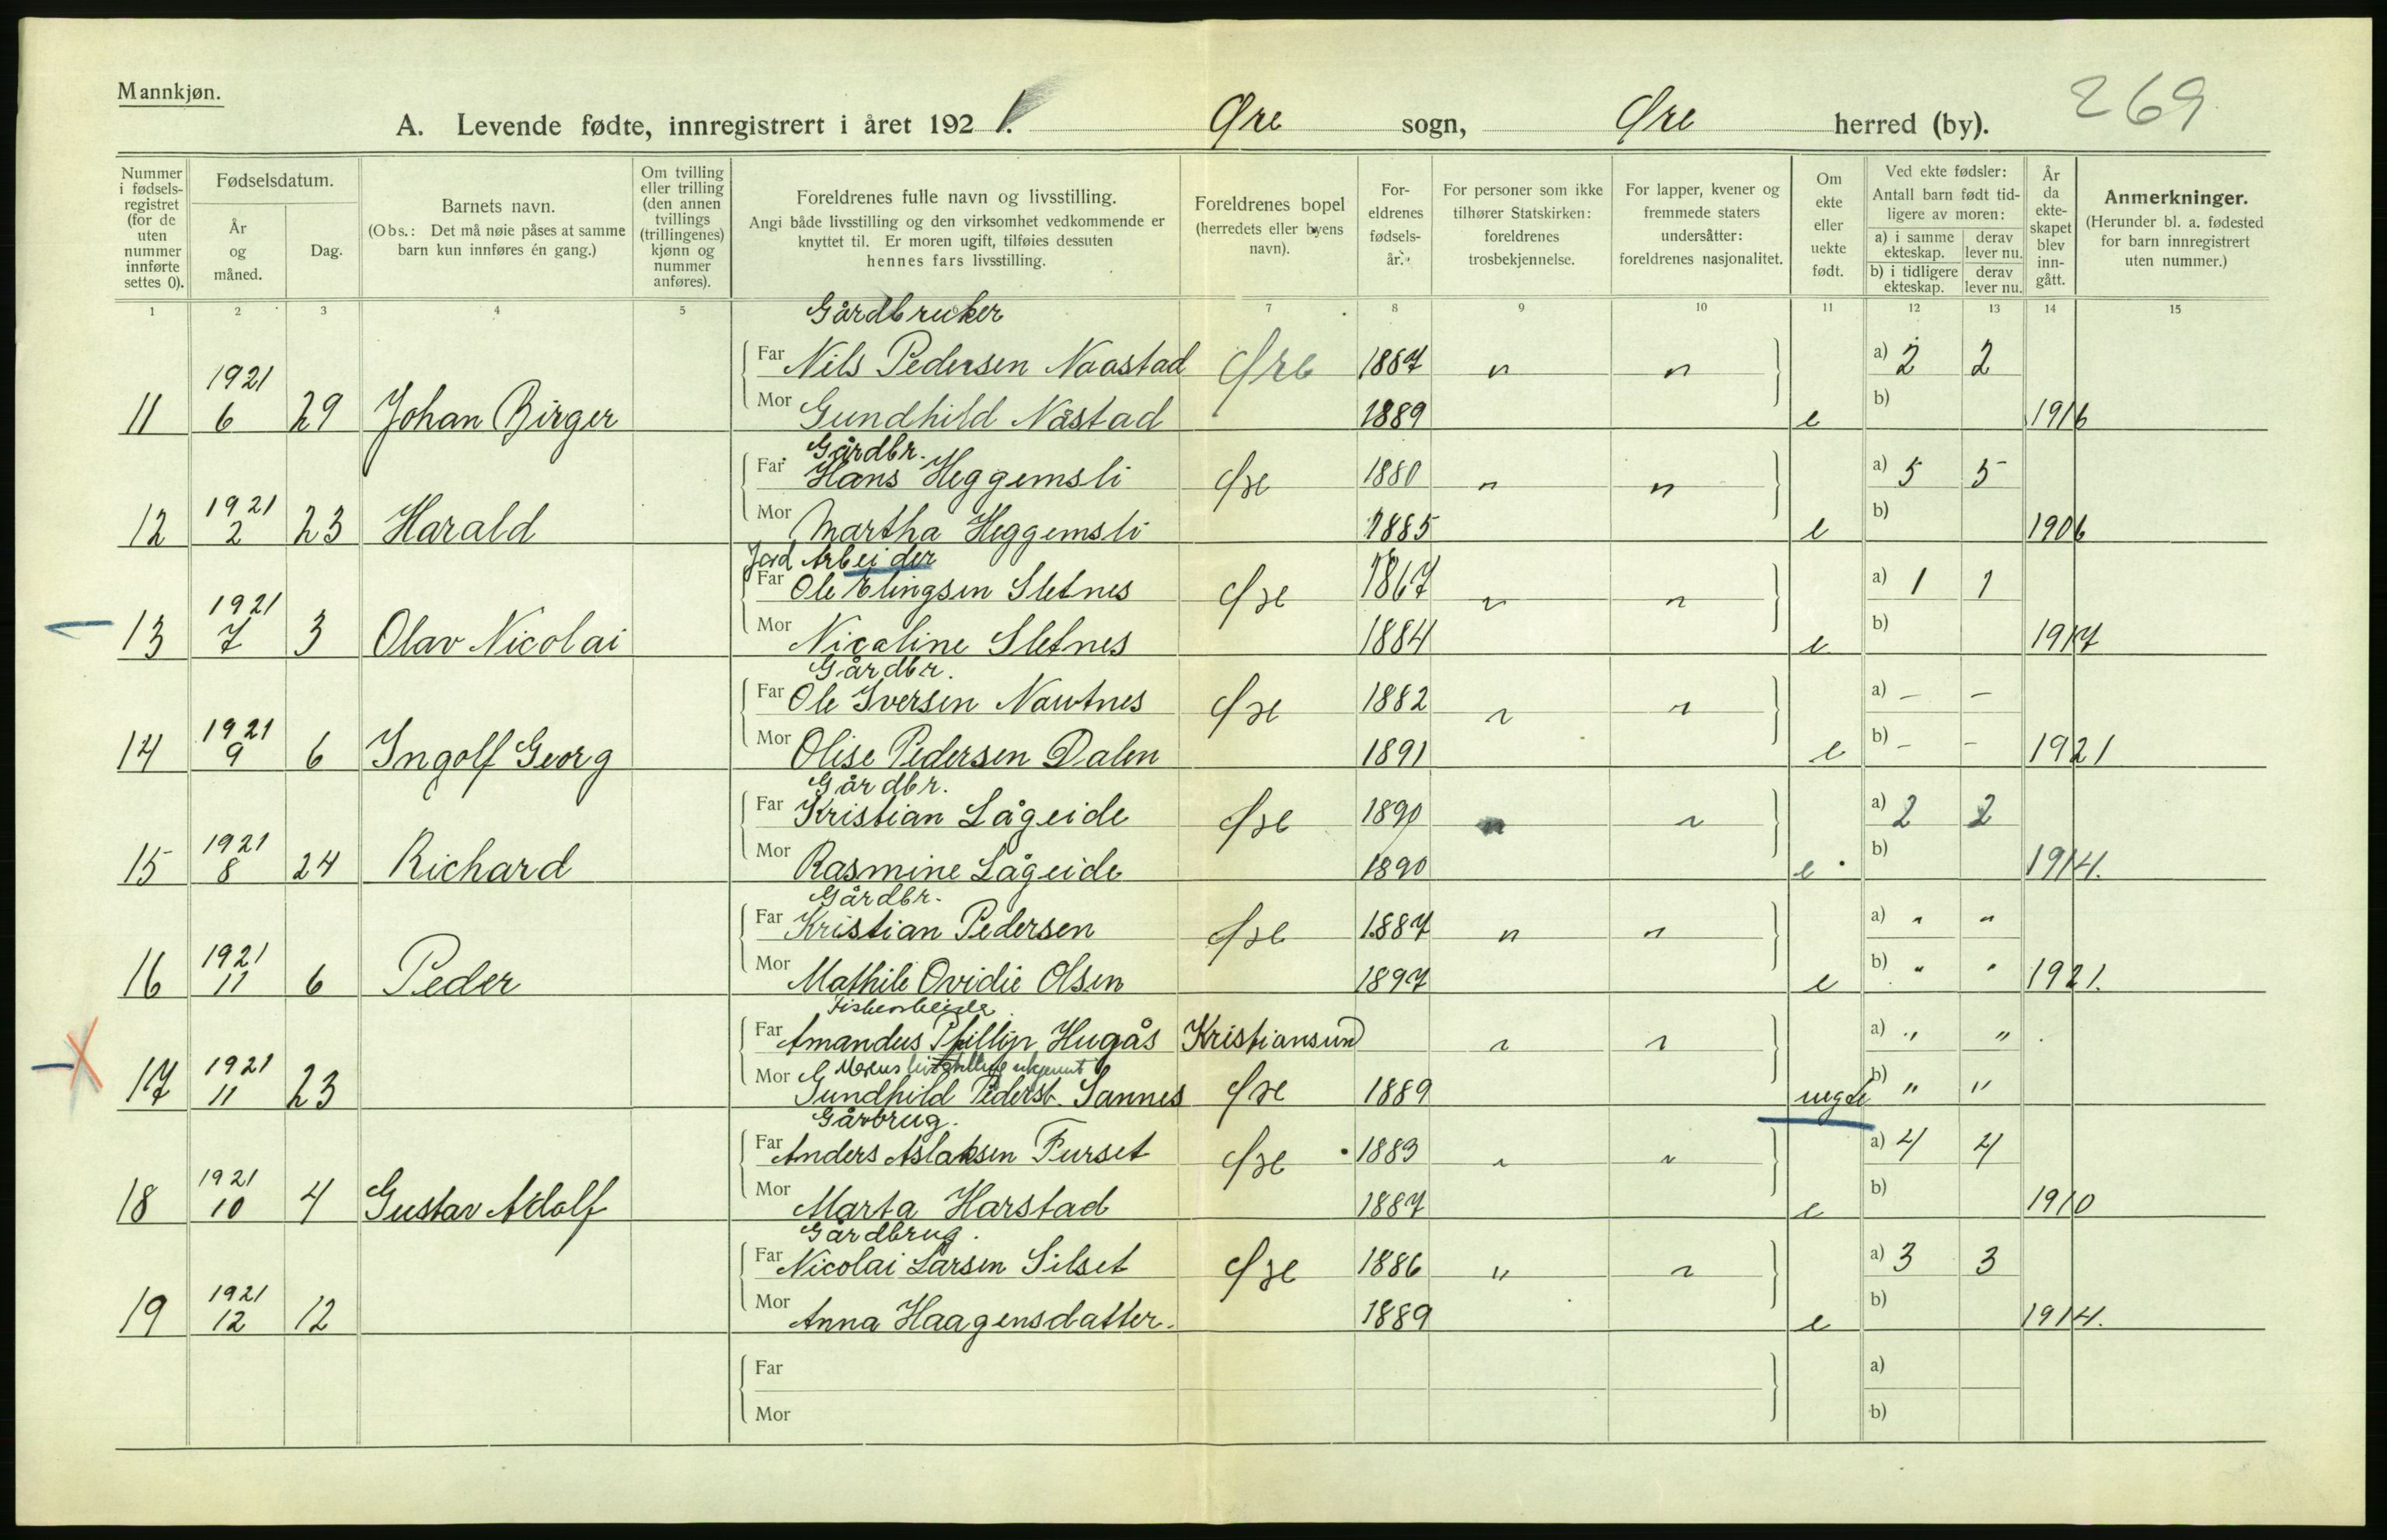 Mannkjøn.
269
A. Levende fødte, innregistrert i året 1921. Øre sogn, Øre herred (by).
Nummer i fødsels-registret (for de uten nummer innførte settes 0).
Fødselsdatum.
År og måned.
Dag.
Barnets navn.
(Obs.: Det må nøie påses at samme barn kun innføres én gang.)
Om tvilling eller trilling (den annen tvillings (trillingenes) kjønn og nummer anføres).
Foreldrenes fulle navn og livsstilling.
Angi både livsstilling og den virksomhet vedkommende er knyttet til. Er moren ugift, tilføies dessuten hennes fars livsstilling.
Foreldrenes bopel (herredets eller byens navn).
For-eldrenes fødsels-år.
For personer som ikke tilhører Statskirken: foreldrenes trosbekjennelse.
For lapper, kvener og fremmede staters undersåtter: foreldrenes nasjonalitet.
Om ekte eller uekte født.
Ved ekte fødsler:
Antall barn født tid-ligere av moren:
a) i samme ekteskap. derav lever nu.
b) i tidligere ekteskap. derav lever nu.
År da ekte-skapet blev inn-gått.
Anmerkninger.
(Herunder bl. a. fødested for barn innregistrert uten nummer.)
1 2 3 4 5 7 8 9 10 11 12 13 14 15
Gårdbruker
Far Nils Pedersen Naastad Øre 1887 " " a) 2 2
11 1921 6 29 Johan Birger Mor Gundhild Nåstad 1889 e b) 1916
Gårdbr.
Far Hans Heggemsli Øre 1880 " " a) 5 5
12 1921 2 23 Harald Mor Martha Heggemsli 1885 e b) 1906
Jord Arbeider
Far Ole Elingsen Sletnes Øre 1867 " " a) 1 1
13 1921 7 3 Olav Nicolai Mor Nicoline Sletnes 1884 e b) 1917
Gårdbr.
Far Ole Iversen Nautnes Øre 1882 " " a) – –
14 1921 9 6 Ingolf Georg Mor Olise Pedersen Dalen 1891 e b) – – 1921
Gårdbr.
Far Kristian Lågeide Øre 1890 " " a) 2 2
15 1921 8 24 Richard Mor Rasmine Lågeide 1890 e b) 1914.
Gårdbr.
Far Kristian Pedersen Øre 1887 " " a) " "
16 1921 11 6 Peder Mor Mathile Ovidie Olsen 1897 e b) " " 1921.
Far Amandus Phillip Hugås Kristiansund " " a) " "
17 1921 11 23 Mor Gundhild Pedersd. Sannes Øre 1889 b) " "
Gårbrug.
Far Anders Aslaksen Furset Øre 1883 " " a) 4 4
18 1921 10 4 Gustav Adolf Mor Marta Harstad 1887 e b) 1910
Gårdbrug.
Far Nicolai Larsen Silset Øre 1886 " " a) 3 3
19 1921 12 12 Mor Anna Haagensdatter. 1889 e b) 1914.
Far a)
Mor b)